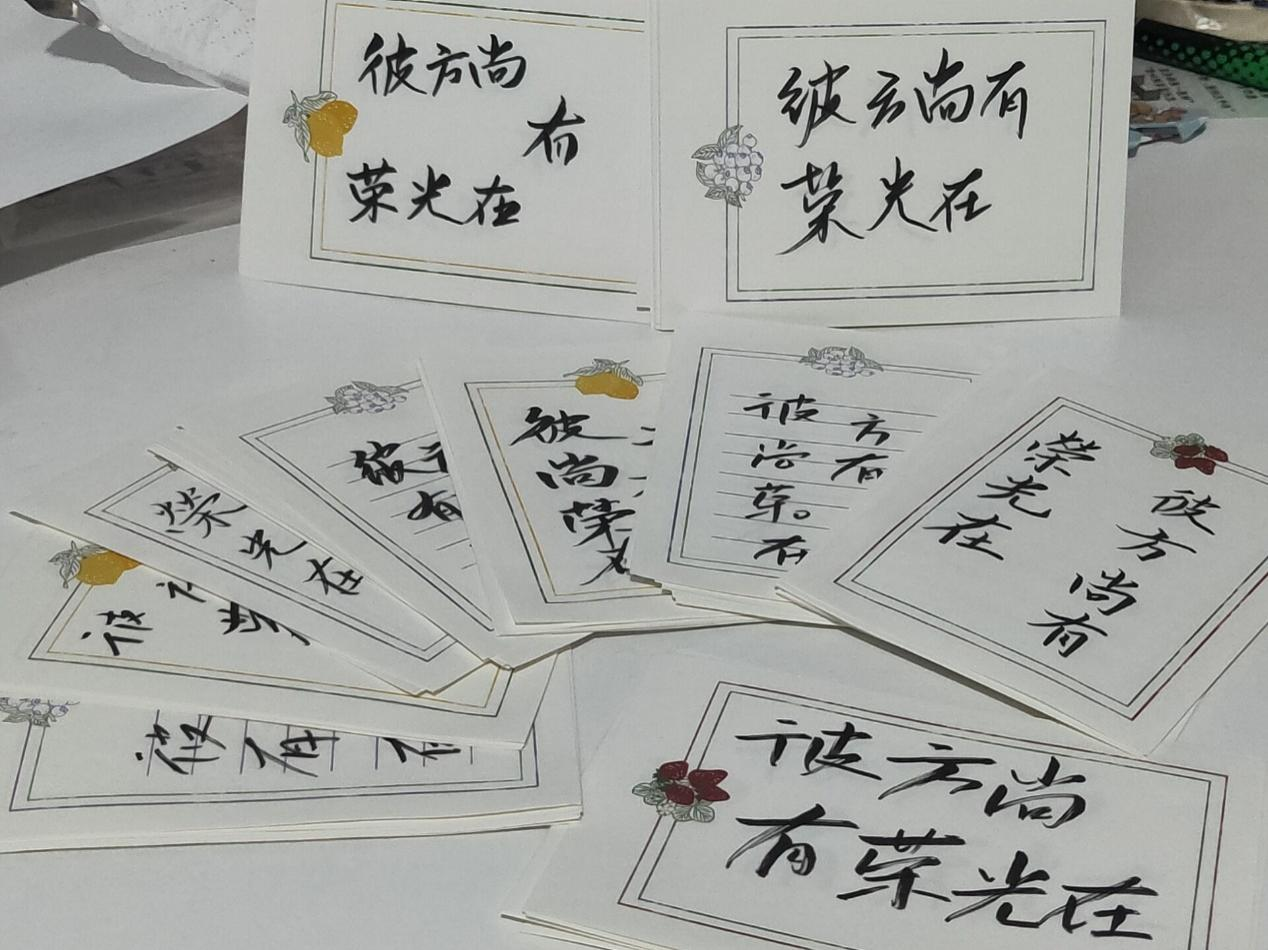 彼方尚
有
荣光在
彼方尚有
荣光在
榮光在
彼
有
彼
尚
榮
彼方
尚有
荣
在
彼方尚有
榮光在
彼
彼方尚
有荣光在